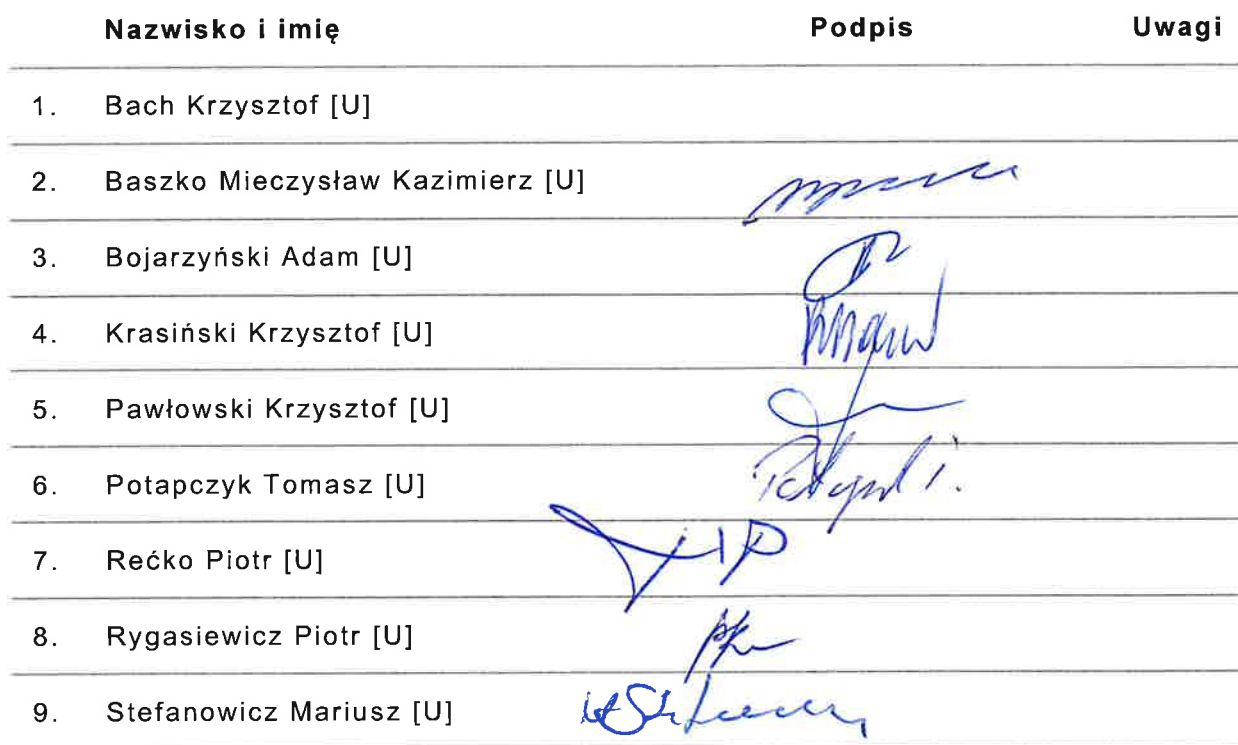 Nazwisko i imię Podpis Uwagi
1. Bach Krzysztof [U]
2. Baszko Mieczysław Kazimierz [U]
3. Bojarzyński Adam [U]
4. Krasiński Krzysztof [U]
5. Pawłowski Krzysztof [U]
6. Potapczyk Tomasz [U]
7. Rećko Piotr [U]
8. Rygasiewicz Piotr [U]
9. Stefanowicz Mariusz [U]